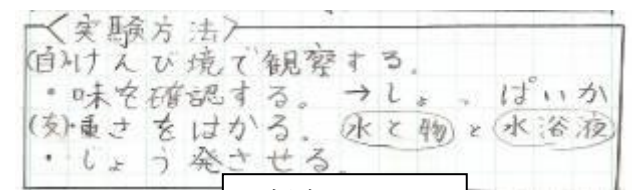 〈実験方法〉
(自)・けんび境で観察する。
・味を確認する。→しょっぱいか
(友)・重さをはかる。水と物と水溶液
・しょう発させる。